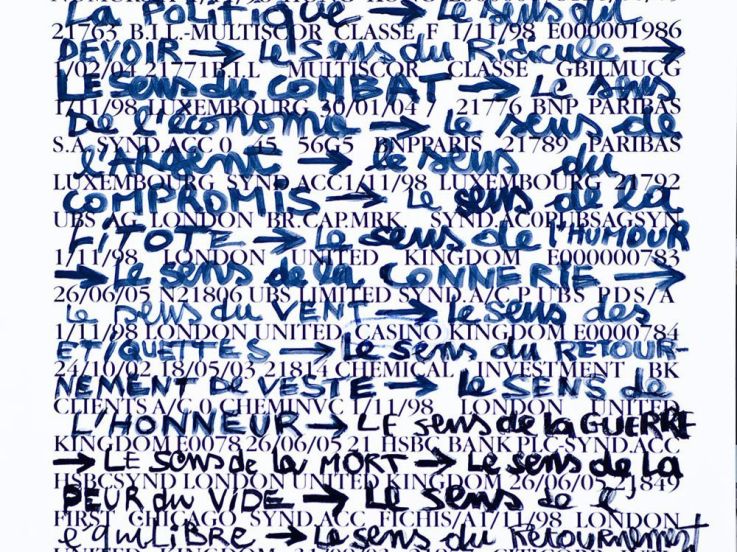 LA POLITIQUE → Le sens du
21763 B.I.L.-MULTISCOR CLASSE F 1/11/98 E000001986
DEVOIR → Le sens du Ridicule →
1/02/04 21771B.I.L MULTISCOR CLASSE GBILMUCG
LE sens du COMBAT → Le sens
1/11/98 LUXEMBOURG 30/01/04 / 21776 BNP PARIBAS
De l'économie → Le sens de
S.A. SYND.ACC 0 45 56G5 BNPPARIS 21789 PARIBAS
L'ARGENT → le sens du
LUXEMBOURG SYND.ACC1/11/98 LUXEMBOURG 21792
COMPROMIS → Le sens de la
UBS AG LONDON BR.CAP.MRK SYND.AC0PUBSAGSYN
LITOTE → Le sens de l'HUMOUR
1/11/98 LONDON UNITED KINGDOM E000000783
→ Le sens de la CONNERIE →
26/06/05 N21806 UBS LIMITED SYND.A/C P UBS PDS/A
Le sens du VENT → Le sens des
1/11/98 LONDON UNITED CASINO KINGDOM E0000784
ETIQUETTES → Le sens du RETOUR-
24/10/02 18/05/03 21814 CHEMICAL INVESTMENT BK
NEMENT De VESTE → Le SENS de
CLIENTS A/C 0 CHEMINVC 1/11/98 LONDON UNITED
L'HONNEUR → LE sens de la GUERRE
KINGDOM E0078 26/06/05 21 HSBC BANK PLC-SYND.ACC
→ LE sens de la MORT → Le sens de La
HSBCSYND LONDON UNITED KINGDOM 26/06/05 21849
PEUR du VIDE → Le sens de l'
FIRST CHICAGO SYND.ACC FICHIS/A1/11/98 LONDON
équiLIBRE → Le sens du Retournement